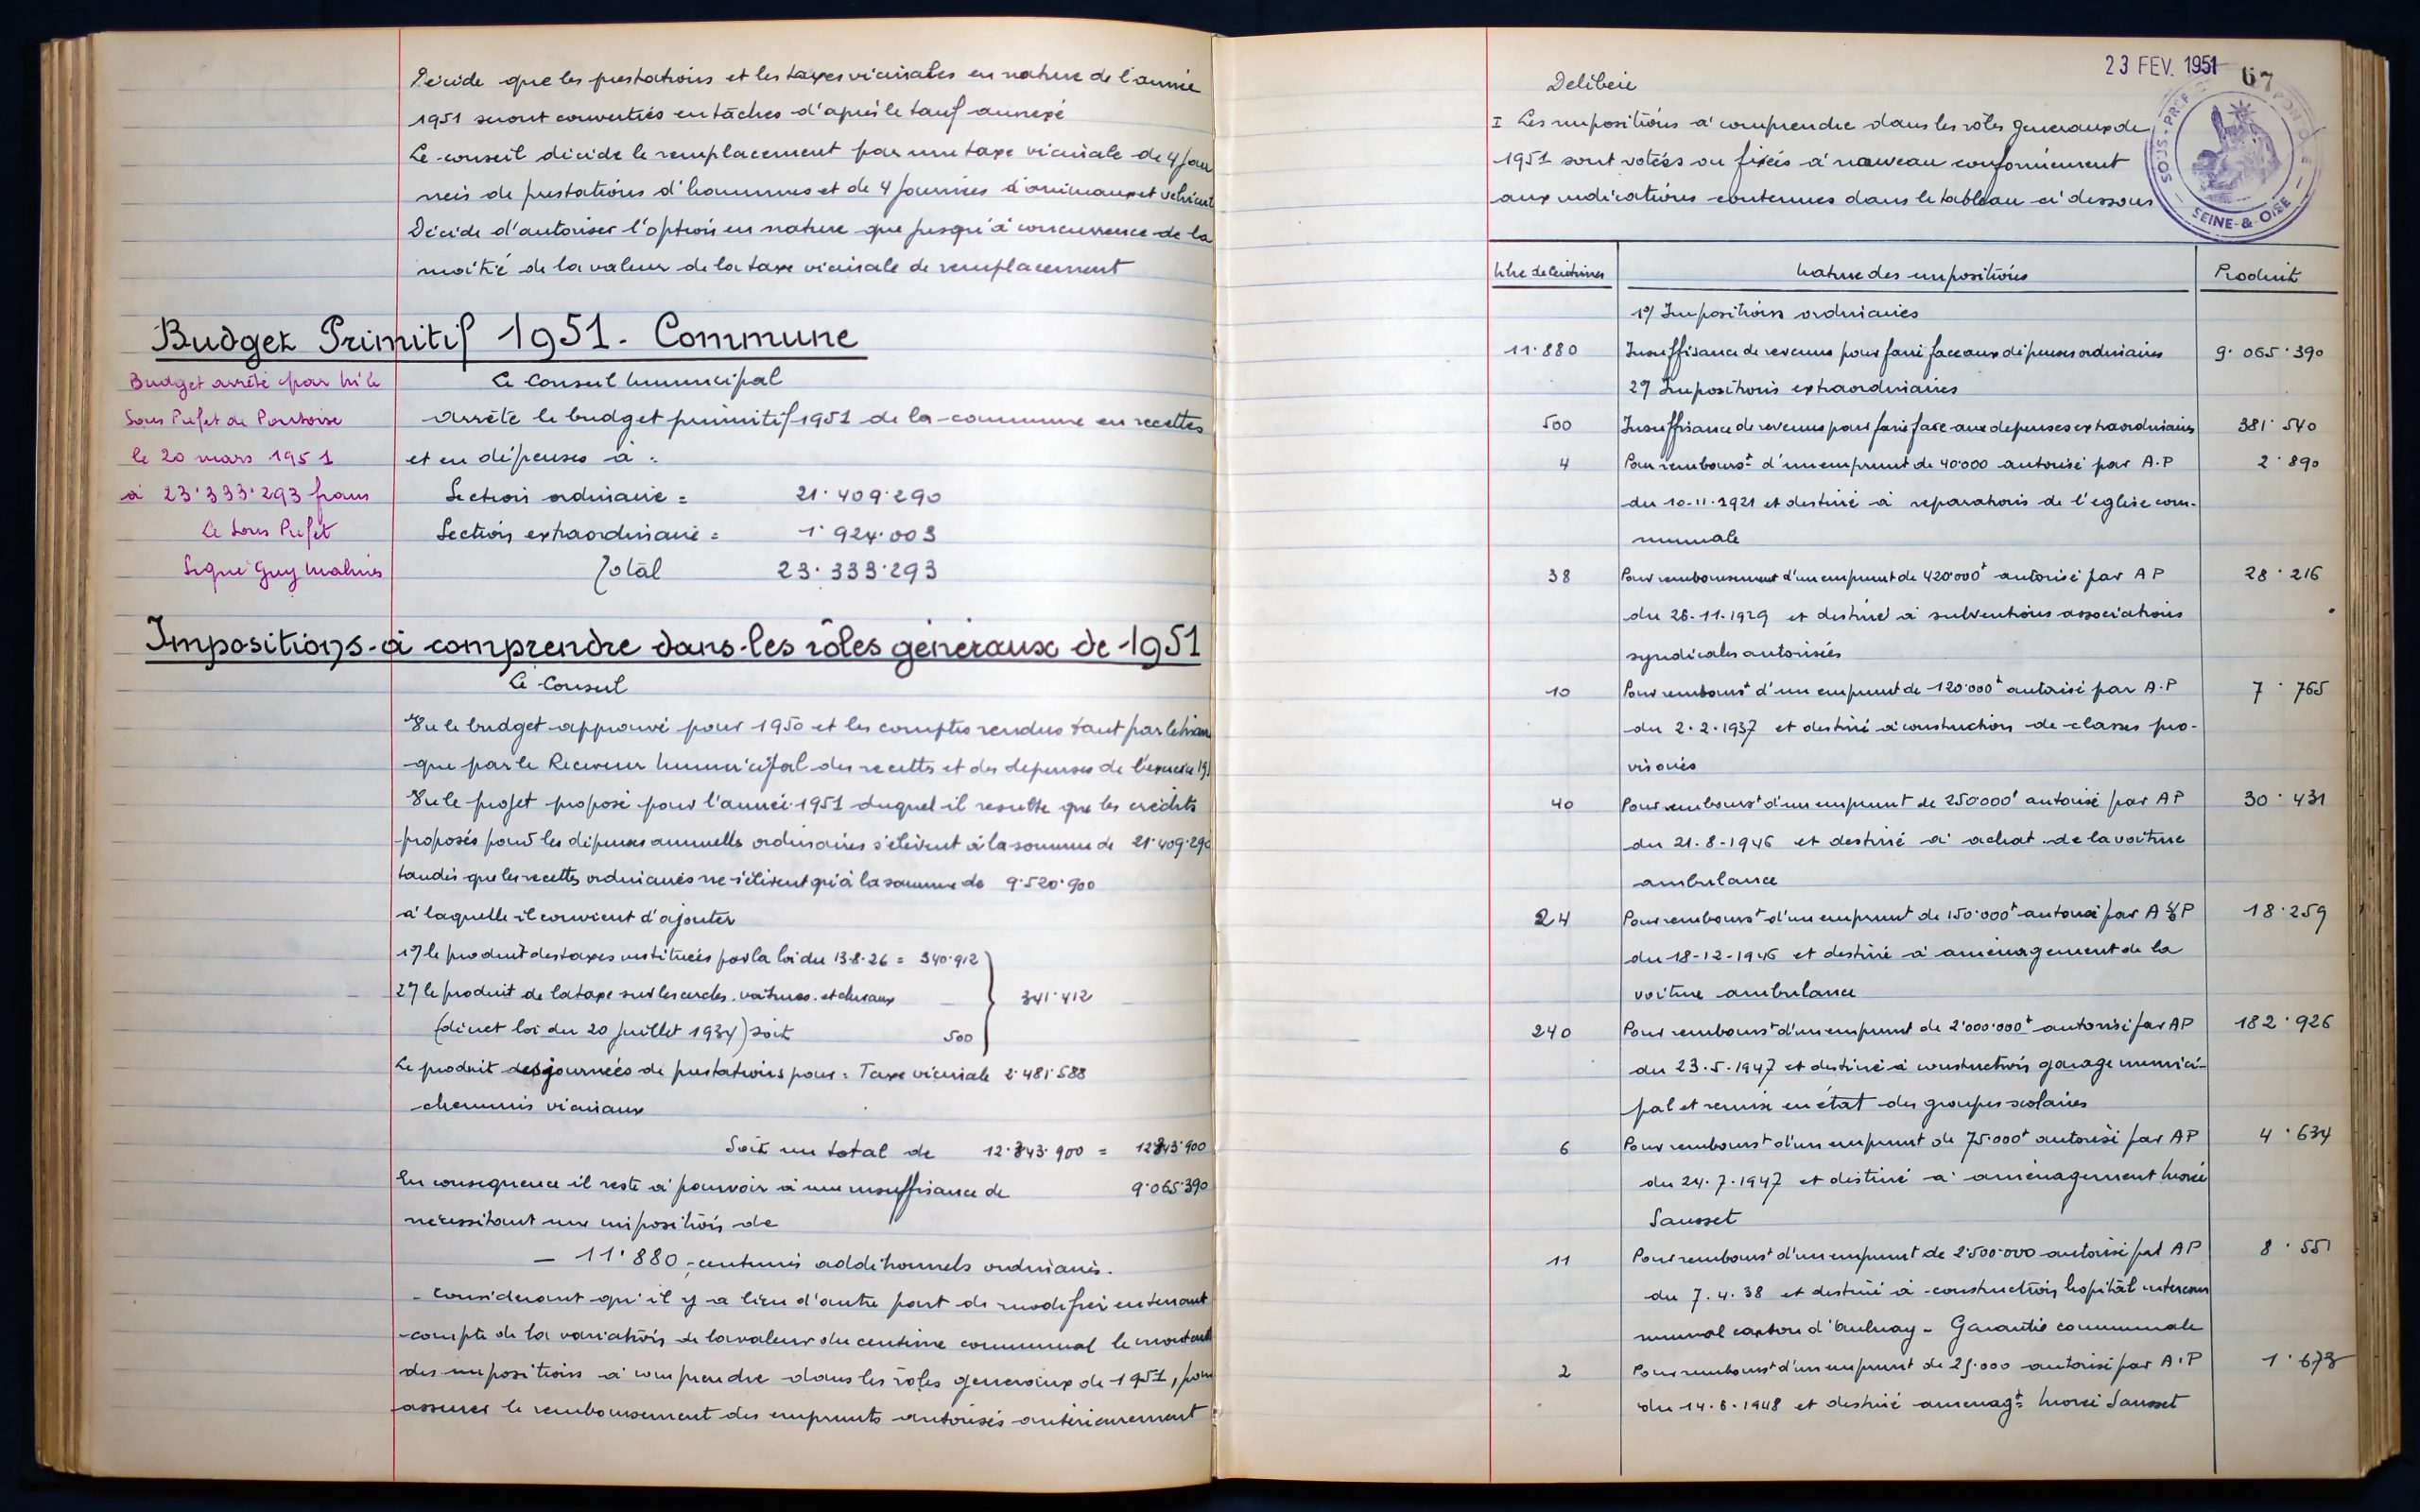 Décide que les prestations et les taxes vicinales en nature de l'année
1951 seront converties en tâches d'après le tarif annexé
Le conseil décide le remplacement par une taxe vicinale de 4 jour
nées de prestations d'hommes et de 4 journées d'animaux et véhicul
Décide d'autoriser l'option en nature que jusqu'à concurrence de la
moitié de la valeur de la taxe vicinale de remplacement
Budget Primitif 1951. Commune
Budget arrêté par Mr le
Sous Préfet de Pontoise
le 20 mars 1951
à 23.333.293 francs
Le Sous Préfet
Signé Guy Malines
Le Conseil Municipal
arrête le budget primitif 1951 de la commune en recettes
et en dépenses à :
Section ordinaire = 21.409.290
Section extraordinaire = 1.924.003
Total 23.333.293
Impositions à comprendre dans les rôles généraux de 1951
Le Conseil
Vu le budget approuvé pour 1950 et les comptes rendus tant par le Maire
que par le Receveur Municipal des recettes et des dépenses de l'exercice 19
Vu le projet proposé pour l'année 1951 duquel il résulte que les crédits
proposés pour les dépenses annuelles ordinaires s'élèvent à la somme de 21.409.290
tandis que les recettes ordinaires ne s'élèvent qu'à la somme de 9.520.900
à laquelle il convient d'ajouter
1°/ le produit des taxes instituées par la loi du 13.8.26 = 340.912
2°/ le produit de la taxe sur les cercles. voitures. et chevaux 341.412
(décret loi du 20 juillet 1934) soit 500
Le produit des journées de prestations pour : Taxe vicinale 2.481.588
chemins vicinaux
Soit un total de 12.343.900 = 12343.900
En conséquence il reste à pourvoir à une insuffisance de 9.065.390
nécessitant une imposition de
– 11.880 centimes additionnels ordinaires.
– Considérant qu'il y a lieu d'autre part de modifier en tenant
compte de la variation de la valeur du centime communal le montant
des impositions à comprendre dans les rôles généraux de 1951, pour
assurer le remboursement des emprunts autorisés antérieurement
23 FEV. 1951 67
SOUS-PREF
SEINE-&-OISE
Délibère
I Les impositions à comprendre dans les rôles généraux de
1951 sont votées ou fixées à nouveau conformément
aux indications contenues dans le tableau ci dessous
Nbre de centimes Nature des impositions Produit
1°/ Impositions ordinaires
11.880 Insuffisance de revenus pour faire face aux dépenses ordinaires 9.065.390
2°/ Impositions extraordinaires
500 Insuffisance de revenus pour faire face aux dépenses extraordinaires 381.540
4 Pour rembourst d'un emprunt de 40.000 autorisé par A.P 2.890
du 10.11.1921 et destiné à réparations de l'église com-
munale
38 Pour remboursement d'un emprunt de 420.000f autorisé par A P 28.216
du 26.11.1929 et destiné à subventions associations
syndicales autorisées
10 Pour rembourst d'un emprunt de 120.000f autorisé par A.P 7.765
du 2.2.1937 et destiné à construction de classes pro-
visoires
40 Pour rembourst d'un emprunt de 250.000f autorisé par AP 30.431
du 21.8.1946 et destiné à achat de la voiture
ambulance
24 Pour rembourst d'un emprunt de 150.000f autorisé par A P 18.259
du 18-12-1946 et destiné à aménagement de la
voiture ambulance
240 Pour rembourst d'un emprunt de 2.000.000f autorisé par AP 182.926
du 23.5.1947 et destiné à construction garage munici-
pal et remise en état des groupes scolaires
6 Pour rembourst d'un emprunt de 75.000f autorisé par AP 4.634
du 24.7.1947 et destiné à aménagement Morée
Sausset
11 Pour rembourst d'un emprunt de 2.500.000 autorisé par AP 8.551
du 7.4.38 et destiné à construction hopital intercom
munal canton d'Aulnay – Garantie communale
2 Pour rembourst d'un emprunt de 25.000 autorisé par A.P 1.673
du 14.6.1948 et destiné aménagt Morée Sausset